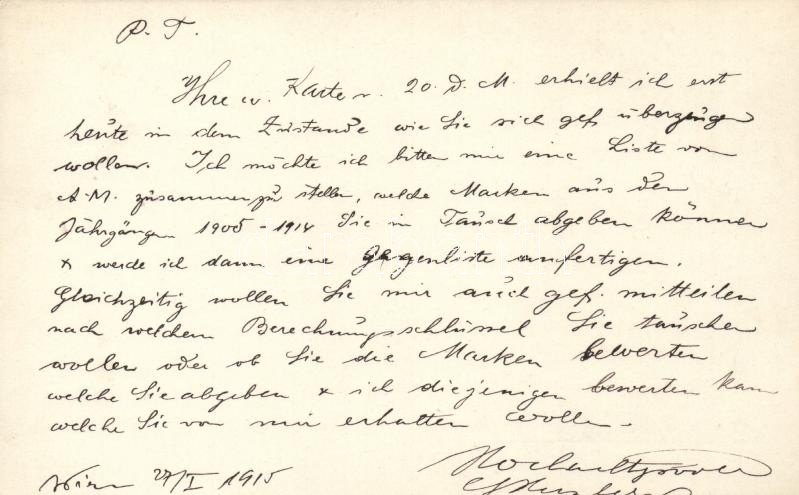 P. T.
Ihre w. Karte v. 20. d. M. erhielt ich erst
heute in dem Zustande wie Sie sich gefl überzeugen
wollen. Ich möchte ich bitten mir eine Liste von
A-M. zusammenzustellen, welche Marken aus den
Jahrgängen 1900 - 1914 Sie in Tausch abgeben können
& werde ich dann eine Gegenliste anfertigen.
Gleichzeitig wollen Sie mir auch gef. mitteilen
nach welchem Berechnungsschlüssel Sie tauschen
wollen oder ob Sie die Marken bewerten
welche Sie abgeben & ich diejenigen bewerten kann
welche Sie von mir erhalten wollen.
Wien 27/I 1915
Hochachtungsvoll